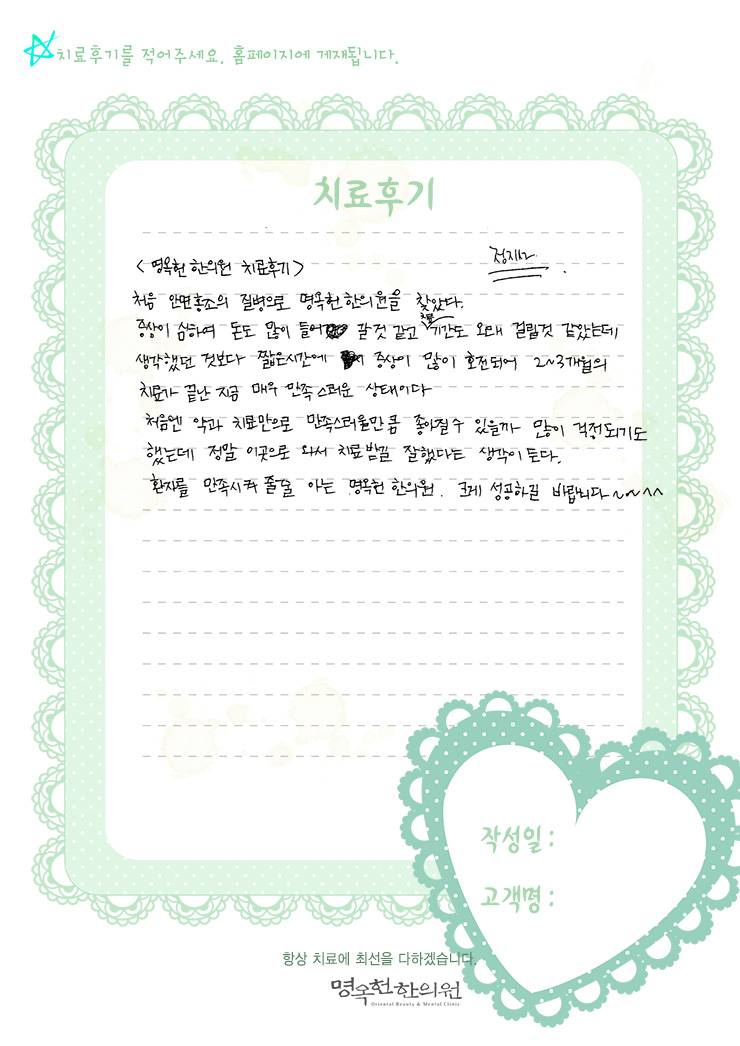 치료후기를 적어주세요. 홈페이지에 게재됩니다.
치료후기
<명옥헌 한의원 치료후기>
처음 안면홍조의 질병으로 명옥헌한의원을 찾았다.
증상이 심하여 돈도 많이 들어 갈것 같고 치료 기간도 오래 걸릴것 같았는데
생각했던 것보다 짧은시간에 증상이 많이 호전되어 2~3개월의
치료가 끝난 지금 매우 만족스러운 상태이다
처음엔 약과 치료만으로 만족스러울만큼 좋아질수 있을까 많이 걱정되기도
했는데 정말 이곳으로 와서 치료받길 잘했다는 생각이 든다.
환자를 만족시켜 줄줄 아는 명옥헌 한의원. 크게 성공하길 바랍니다~~^^
작성일 :
고객명 :
항상 치료에 최선을 다하겠습니다.
명옥헌한의원
Oriental Beauty & Mental Clinic